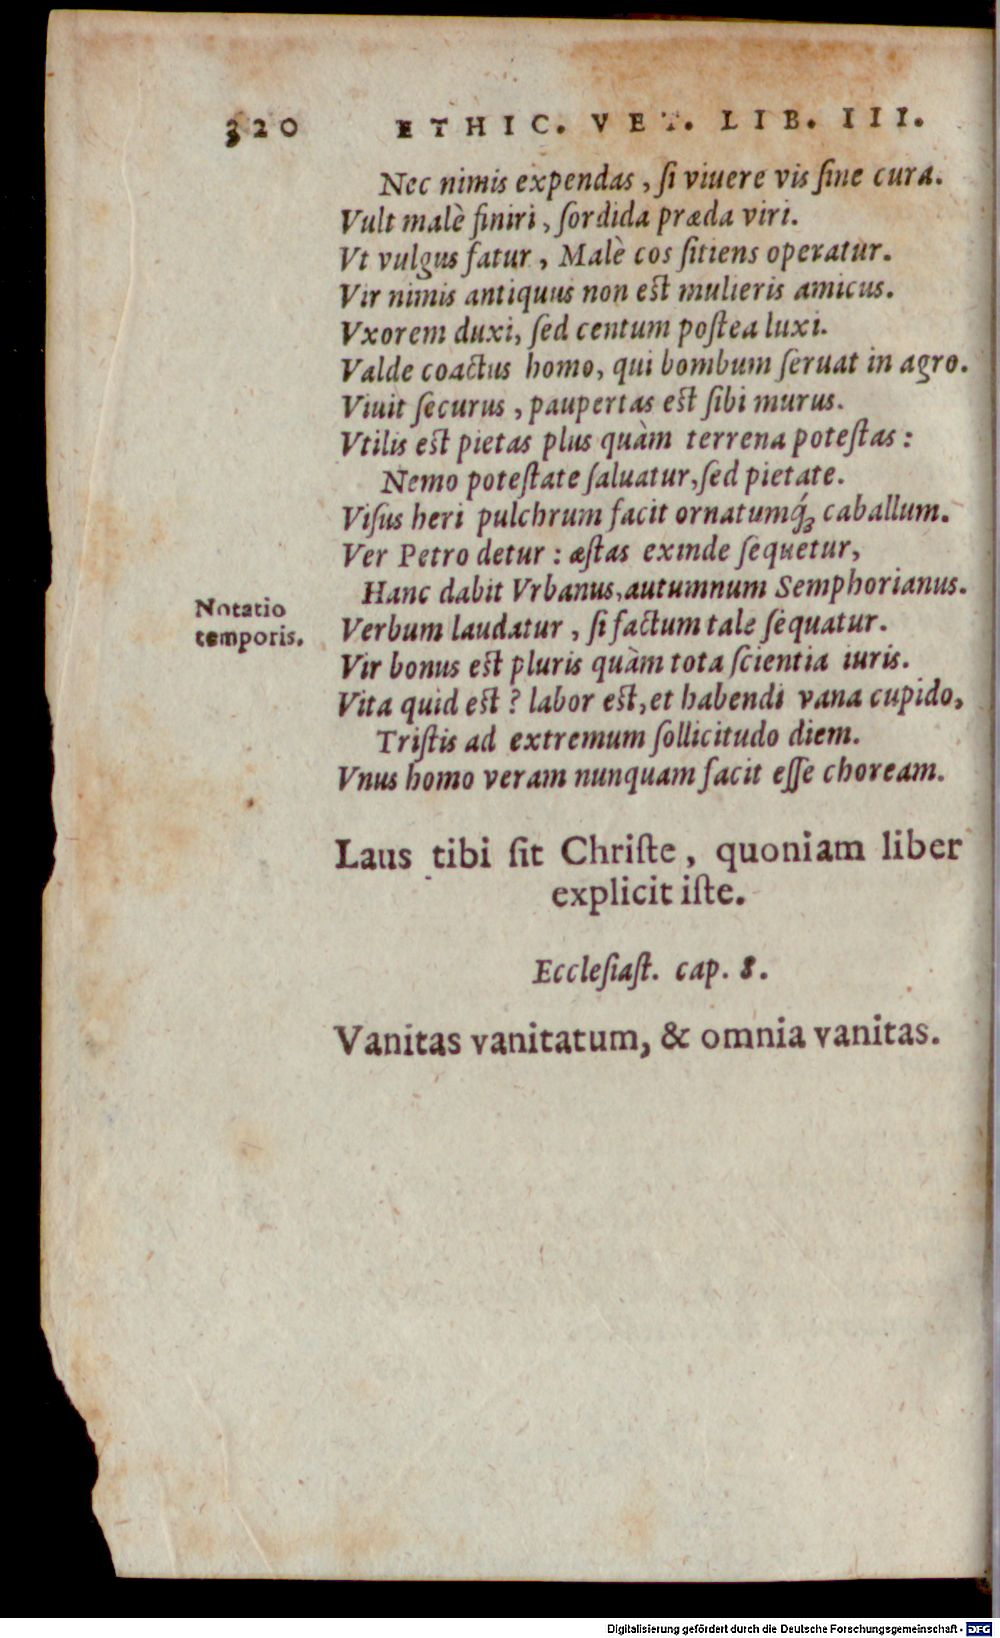 320 ETHIC. VET. LIB. III.
Nec nimis expendas, ſi viuere vis ſine cura.
Vult malè finiri, ſordida præda viri.
Vt vulgus fatur, Malè cos ſitiens operatur.
Vir nimis antiquus non eſt mulieris amicus.
Vxorem duxi, ſed centum poſtea luxi.
Valde coactus homo, qui bombum ſeruat in agro.
Viuit ſecurus, paupertas eſt ſibi murus.
Vtilis eſt pietas plus quàm terrena poteſtas:
Nemo poteſtate ſaluatur, ſed pietate.
Viſus heri pulchrum facit ornatumq́; caballum.
Ver Petro detur: æſtas exinde ſequetur,
Hanc dabit Vrbanus, autumnum Semphorianus.
Notatio
temporis.
Verbum laudatur, ſi factum tale ſequatur.
Vir bonus eſt pluris quàm tota ſcientia iuris.
Vita quid eſt? labor eſt, et habendi vana cupido,
Triſtis ad extremum ſollicitudo diem.
Vnus homo veram nunquam facit eſſe choream.
Laus tibi ſit Chriſte, quoniam liber
explicit iſte.
Eccleſiaſt. cap. 8.
Vanitas vanitatum, & omnia vanitas.
Digitalisierung gefördert durch die Deutsche Forschungsgemeinschaft - DFG